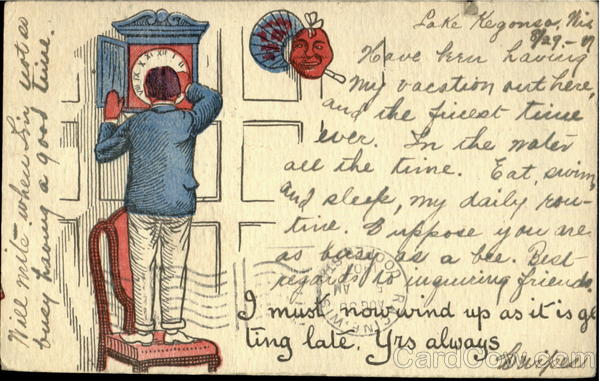 Lake Kegonsa, Wis
8/29-07
Have been having
my vacation out here,
and the finest time
ever. In the water
all the time. Eat, swim,
and sleep, my daily rou-
tine. I suppose you are
as busy as a bee. Best
regards to inquiring friends.
I must now wind up as it is ge
ting late. Yrs always
Will write when I'm not so
busy having a good time.
XI XII I II
AUG 30
AM
WIS.
CardCow.com